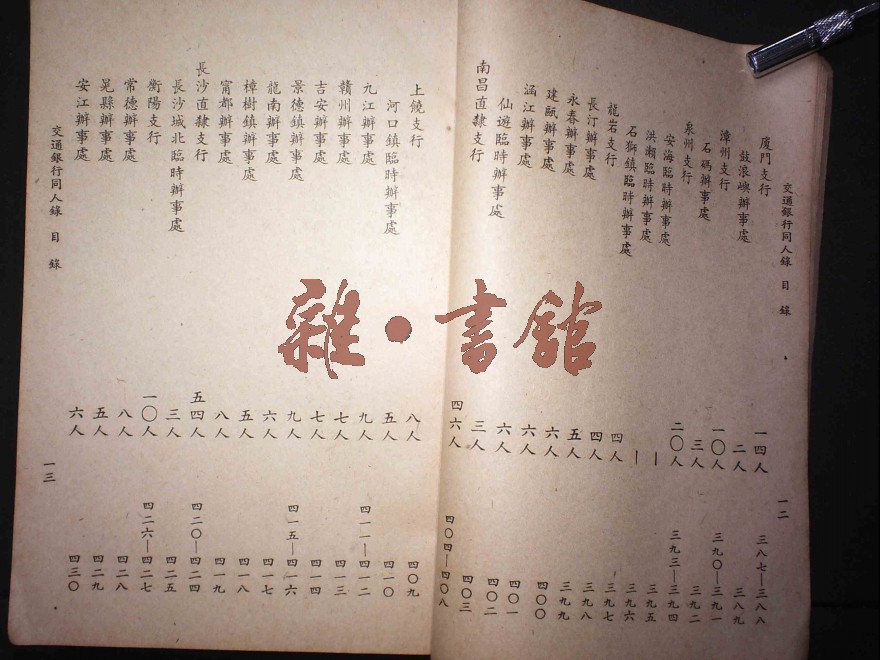 交通銀行同人錄 目錄 一二
廈門支行 一四人 三八七—三八八
鼓浪嶼辦事處 二人 三八九
漳州支行 一〇人 三九〇—三九一
石碼辦事處 三人 三九二
泉州支行 二〇人 三九三—三九四
安海臨時辦事處 — 三九五
洪瀨臨時辦事處 — 三九六
石獅鎮臨時辦事處 四人 三九七
龍岩支行 四人 三九八
長汀辦事處 五人 三九九
永春辦事處 六人 四〇〇
建甌辦事處 六人 四〇一
涵江辦事處 六人 四〇二
仙遊臨時辦事處 三人 四〇三
南昌直隸支行 四六人 四〇四—四〇八
上饒支行 八人 四〇九
河口鎮臨時辦事處 五人 四一〇
九江辦事處 九人 四一一—四一二
贛州辦事處 七人 四一三
吉安辦事處 七人 四一四
景德鎮辦事處 九人 四一五—四一六
龍南辦事處 六人 四一七
樟樹鎮辦事處 五人 四一八
甯都辦事處 八人 四一九
長沙直隸支行 五四人 四二〇—四二四
長沙城北臨時辦事處 三人 四二五
衡陽支行 一〇人 四二六—四二七
常德辦事處 八人 四二八
晃縣辦事處 五人 四二九
安江辦事處 六人 四三〇
交通銀行同人錄 目錄 一三
雜·書館